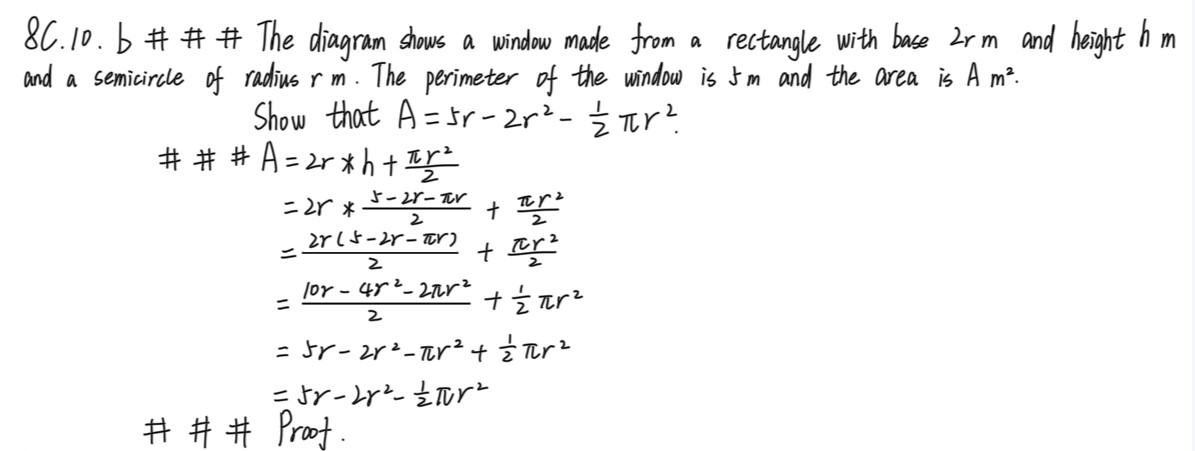 8C.10.b # # # The diagram shows a window made from a rectangle with base 2r m and height h m
and a semicircle of radius r m. The perimeter of the window is 5 m and the area is A m².
Show that A = 5r - 2r² - ½ πr².
# # # A = 2r * h + πr²/2
= 2r * (5-2r-πr)/2 + πr²/2
= 2r(5-2r-πr)/2 + πr²/2
= (10r - 4r² - 2πr²)/2 + ½ πr²
= 5r - 2r² - πr² + ½ πr²
= 5r - 2r² - ½ πr²
# # # Proof.